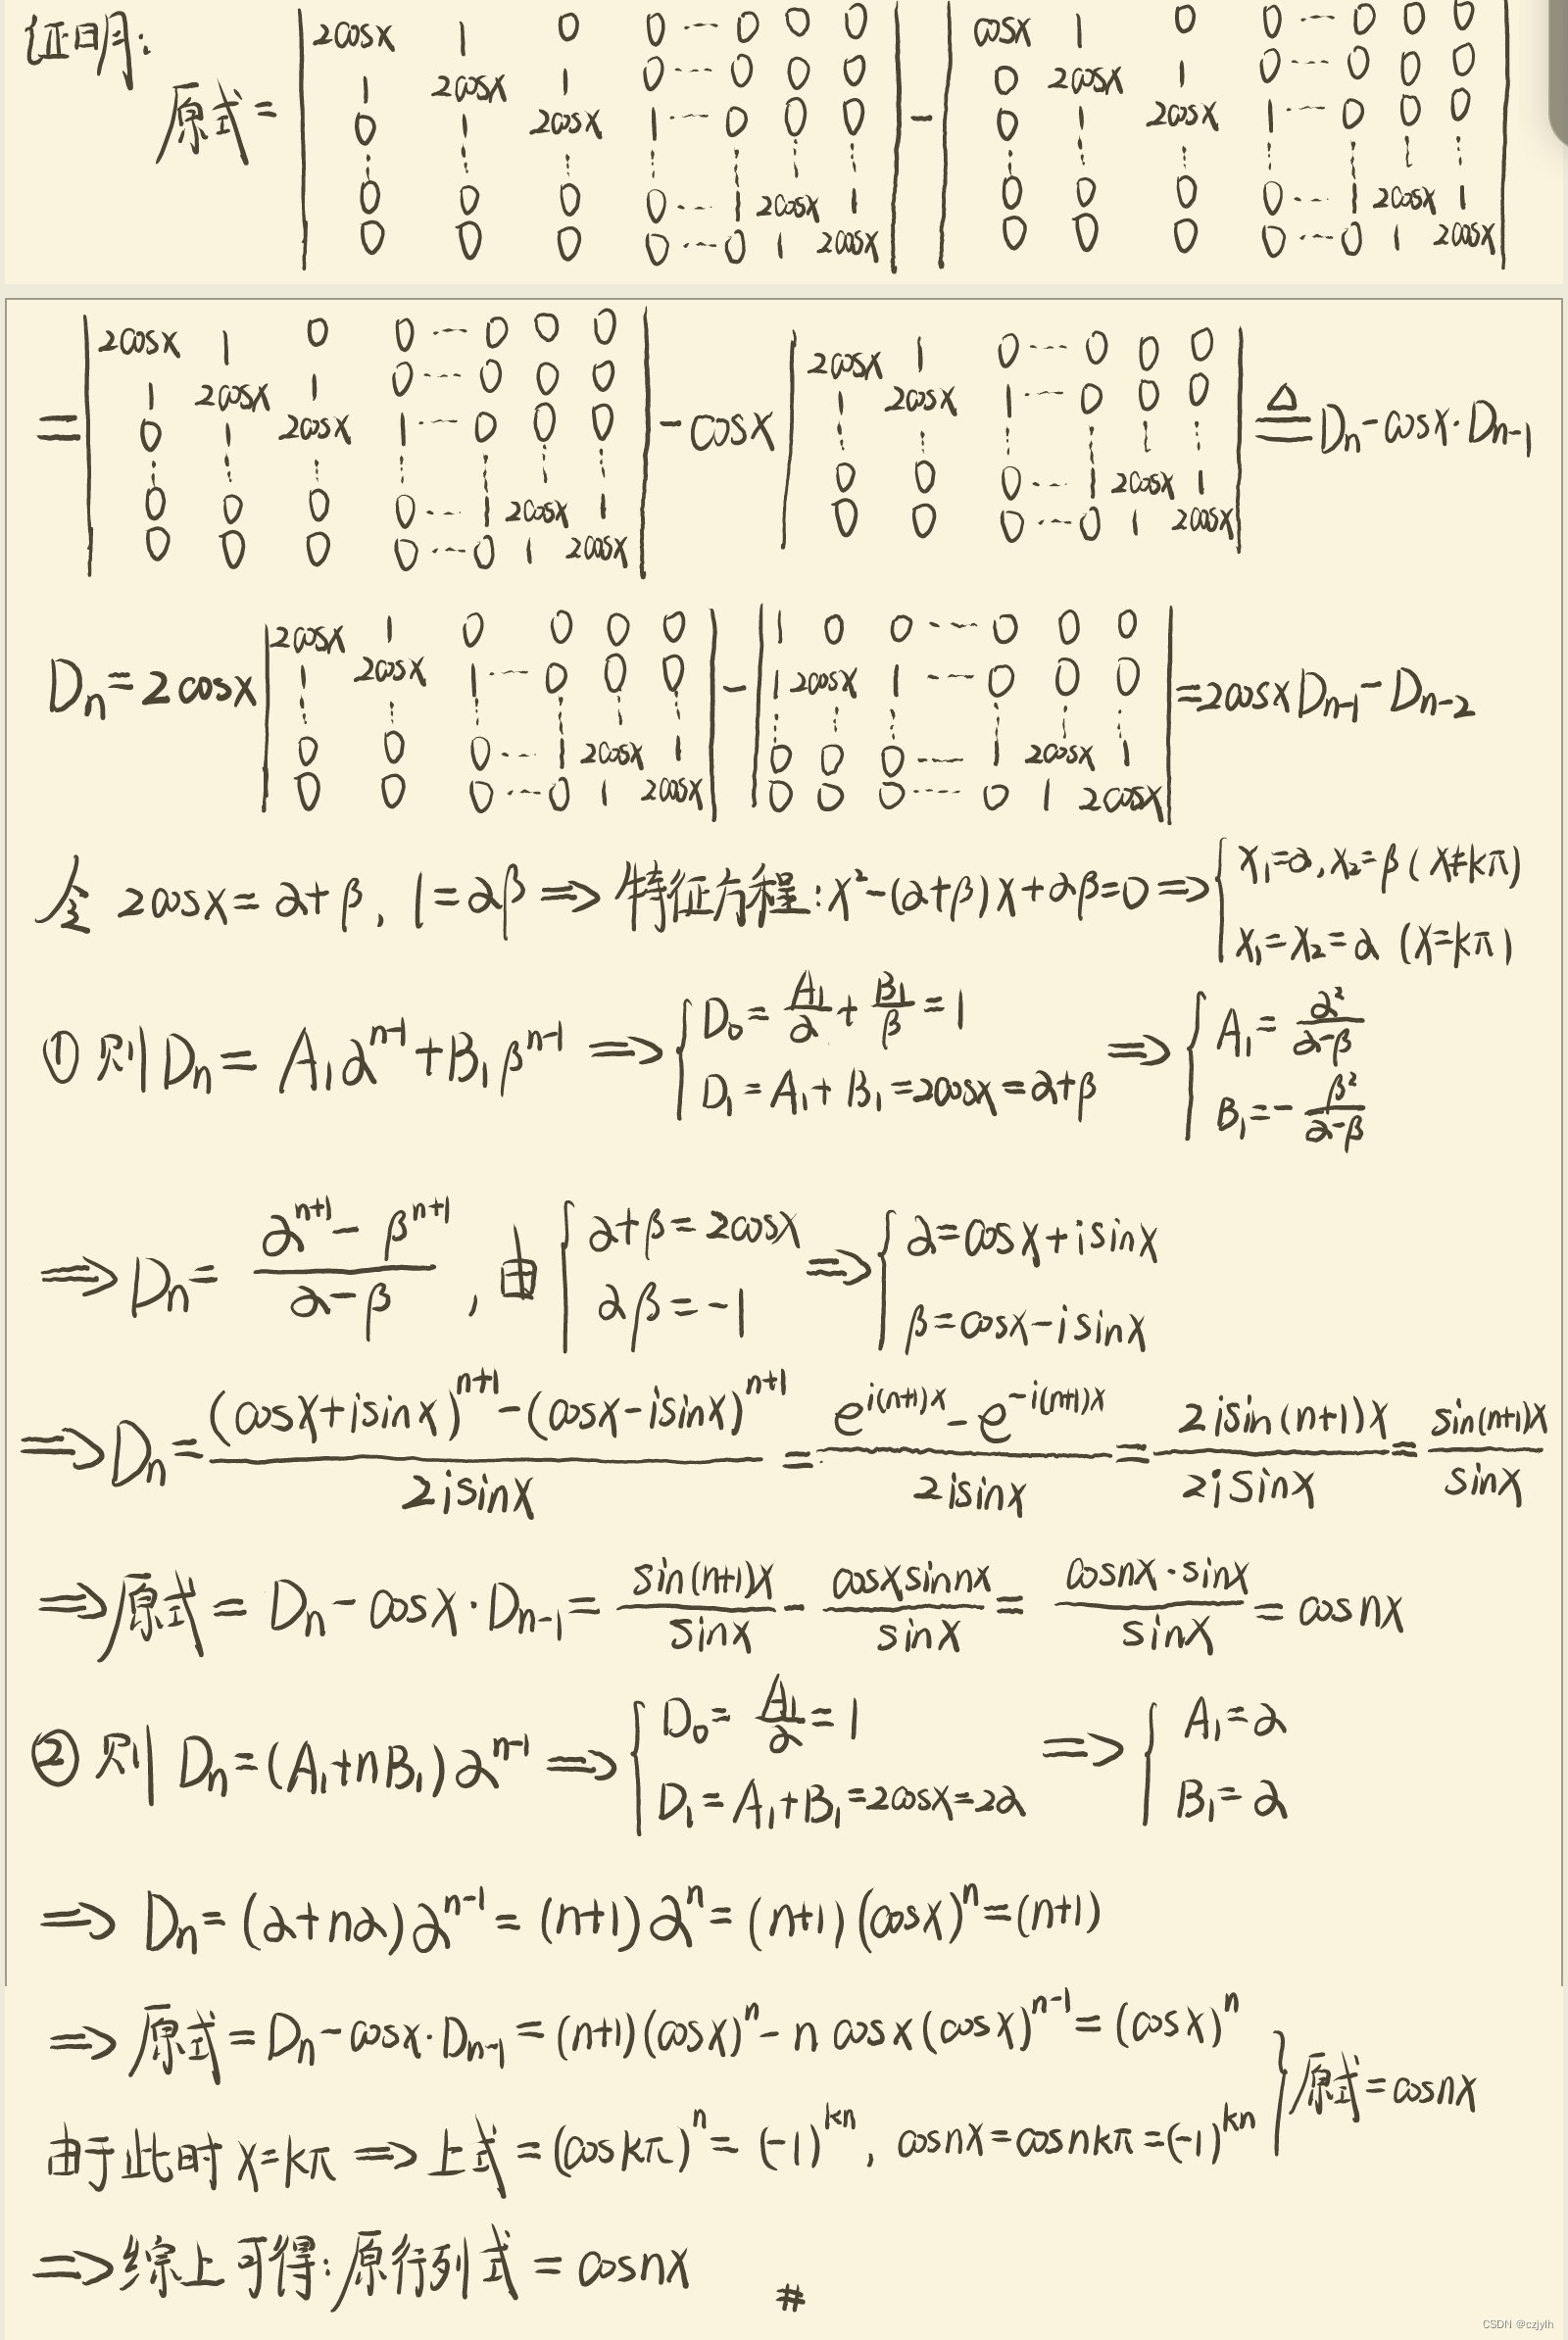 证明:
原式 = | 2cosx 1 0 0 ⋯ 0 0 0 | − | cosx 1 0 0 ⋯ 0 0 0 |
| 1 2cosx 1 0 ⋯ 0 0 0 | | 0 2cosx 1 0 ⋯ 0 0 0 |
| 0 1 2cosx 1 ⋯ 0 0 0 | | 0 1 2cosx 1 ⋯ 0 0 0 |
| ⋮ ⋮ ⋮ ⋮ ⋮ ⋮ ⋮ | | ⋮ ⋮ ⋮ ⋮ ⋮ ⋮ ⋮ |
| 0 0 0 0 ⋯ 1 2cosx 1 | | 0 0 0 0 ⋯ 1 2cosx 1 |
| 0 0 0 0 ⋯ 0 1 2cosx | | 0 0 0 0 ⋯ 0 1 2cosx |
= | 2cosx 1 0 0 ⋯ 0 0 0 | − cosx | 2cosx 1 0 ⋯ 0 0 0 | ≜ Dₙ − cosx·Dₙ₋₁
| 1 2cosx 1 0 ⋯ 0 0 0 | | 1 2cosx 1 ⋯ 0 0 0 |
| 0 1 2cosx 1 ⋯ 0 0 0 | | ⋮ ⋮ ⋮ ⋮ ⋮ ⋮ |
| ⋮ ⋮ ⋮ ⋮ ⋮ ⋮ ⋮ | | 0 0 0 ⋯ 1 2cosx 1 |
| 0 0 0 0 ⋯ 1 2cosx 1 | | 0 0 0 ⋯ 0 1 2cosx |
| 0 0 0 0 ⋯ 0 1 2cosx |
Dₙ = 2cosx | 2cosx 1 0 0 0 0 | − | 1 0 0 ⋯ 0 0 0 | = 2cosx Dₙ₋₁ − Dₙ₋₂
| 1 2cosx 1 ⋯ 0 0 0 | | 1 2cosx 1 ⋯ 0 0 0 |
| ⋮ ⋮ ⋮ ⋮ ⋮ ⋮ | | ⋮ ⋮ ⋮ ⋮ ⋮ ⋮ |
| 0 0 0 ⋯ 1 2cosx 1 | | 0 0 0 ⋯ 1 2cosx 1 |
| 0 0 0 ⋯ 0 1 2cosx | | 0 0 0 ⋯ 0 1 2cosx |
令 2cosx = α+β, 1 = αβ ⟹ 特征方程: x² − (α+β)x + αβ = 0 ⟹ { x₁=α, x₂=β (x≠kπ)
x₁=x₂=α (x=kπ)
① 则 Dₙ = A₁αⁿ⁻¹ + B₁βⁿ⁻¹ ⟹ { D₀ = A₁/α + B₁/β = 1 ⟹ { A₁ = α²/(α−β)
D₁ = A₁ + B₁ = 2cosx = α+β B₁ = −β²/(α−β)
⟹ Dₙ = (αⁿ⁺¹ − βⁿ⁺¹)/(α−β), 由 { α+β = 2cosx ⟹ { α = cosx + isinx
αβ = −1 β = cosx − isinx
⟹ Dₙ = ((cosx+isinx)ⁿ⁺¹ − (cosx−isinx)ⁿ⁺¹)/(2isinx) = (e^{i(n+1)x} − e^{−i(n+1)x})/(2isinx) = 2isin(n+1)x/(2isinx) = sin(n+1)x/sinx
⟹ 原式 = Dₙ − cosx·Dₙ₋₁ = sin(n+1)x/sinx − cosxsinnx/sinx = cosnx·sinx/sinx = cosnx
② 则 Dₙ = (A₁+nB₁)αⁿ⁻¹ ⟹ { D₀ = A₁/α = 1 ⟹ { A₁ = α
D₁ = A₁+B₁ = 2cosx = 2α B₁ = α
⟹ Dₙ = (α+nα)αⁿ⁻¹ = (n+1)αⁿ = (n+1)(cosx)ⁿ = (n+1)
⟹ 原式 = Dₙ − cosx·Dₙ₋₁ = (n+1)(cosx)ⁿ − n cosx(cosx)ⁿ⁻¹ = (cosx)ⁿ
由于此时 x=kπ ⟹ 上式 = (coskπ)ⁿ = (−1)^{kn}, cosnx = cosnkπ = (−1)^{kn} } 原式 = cosnx
⟹ 综上可得: 原行列式 = cosnx #
CSDN @czjylh